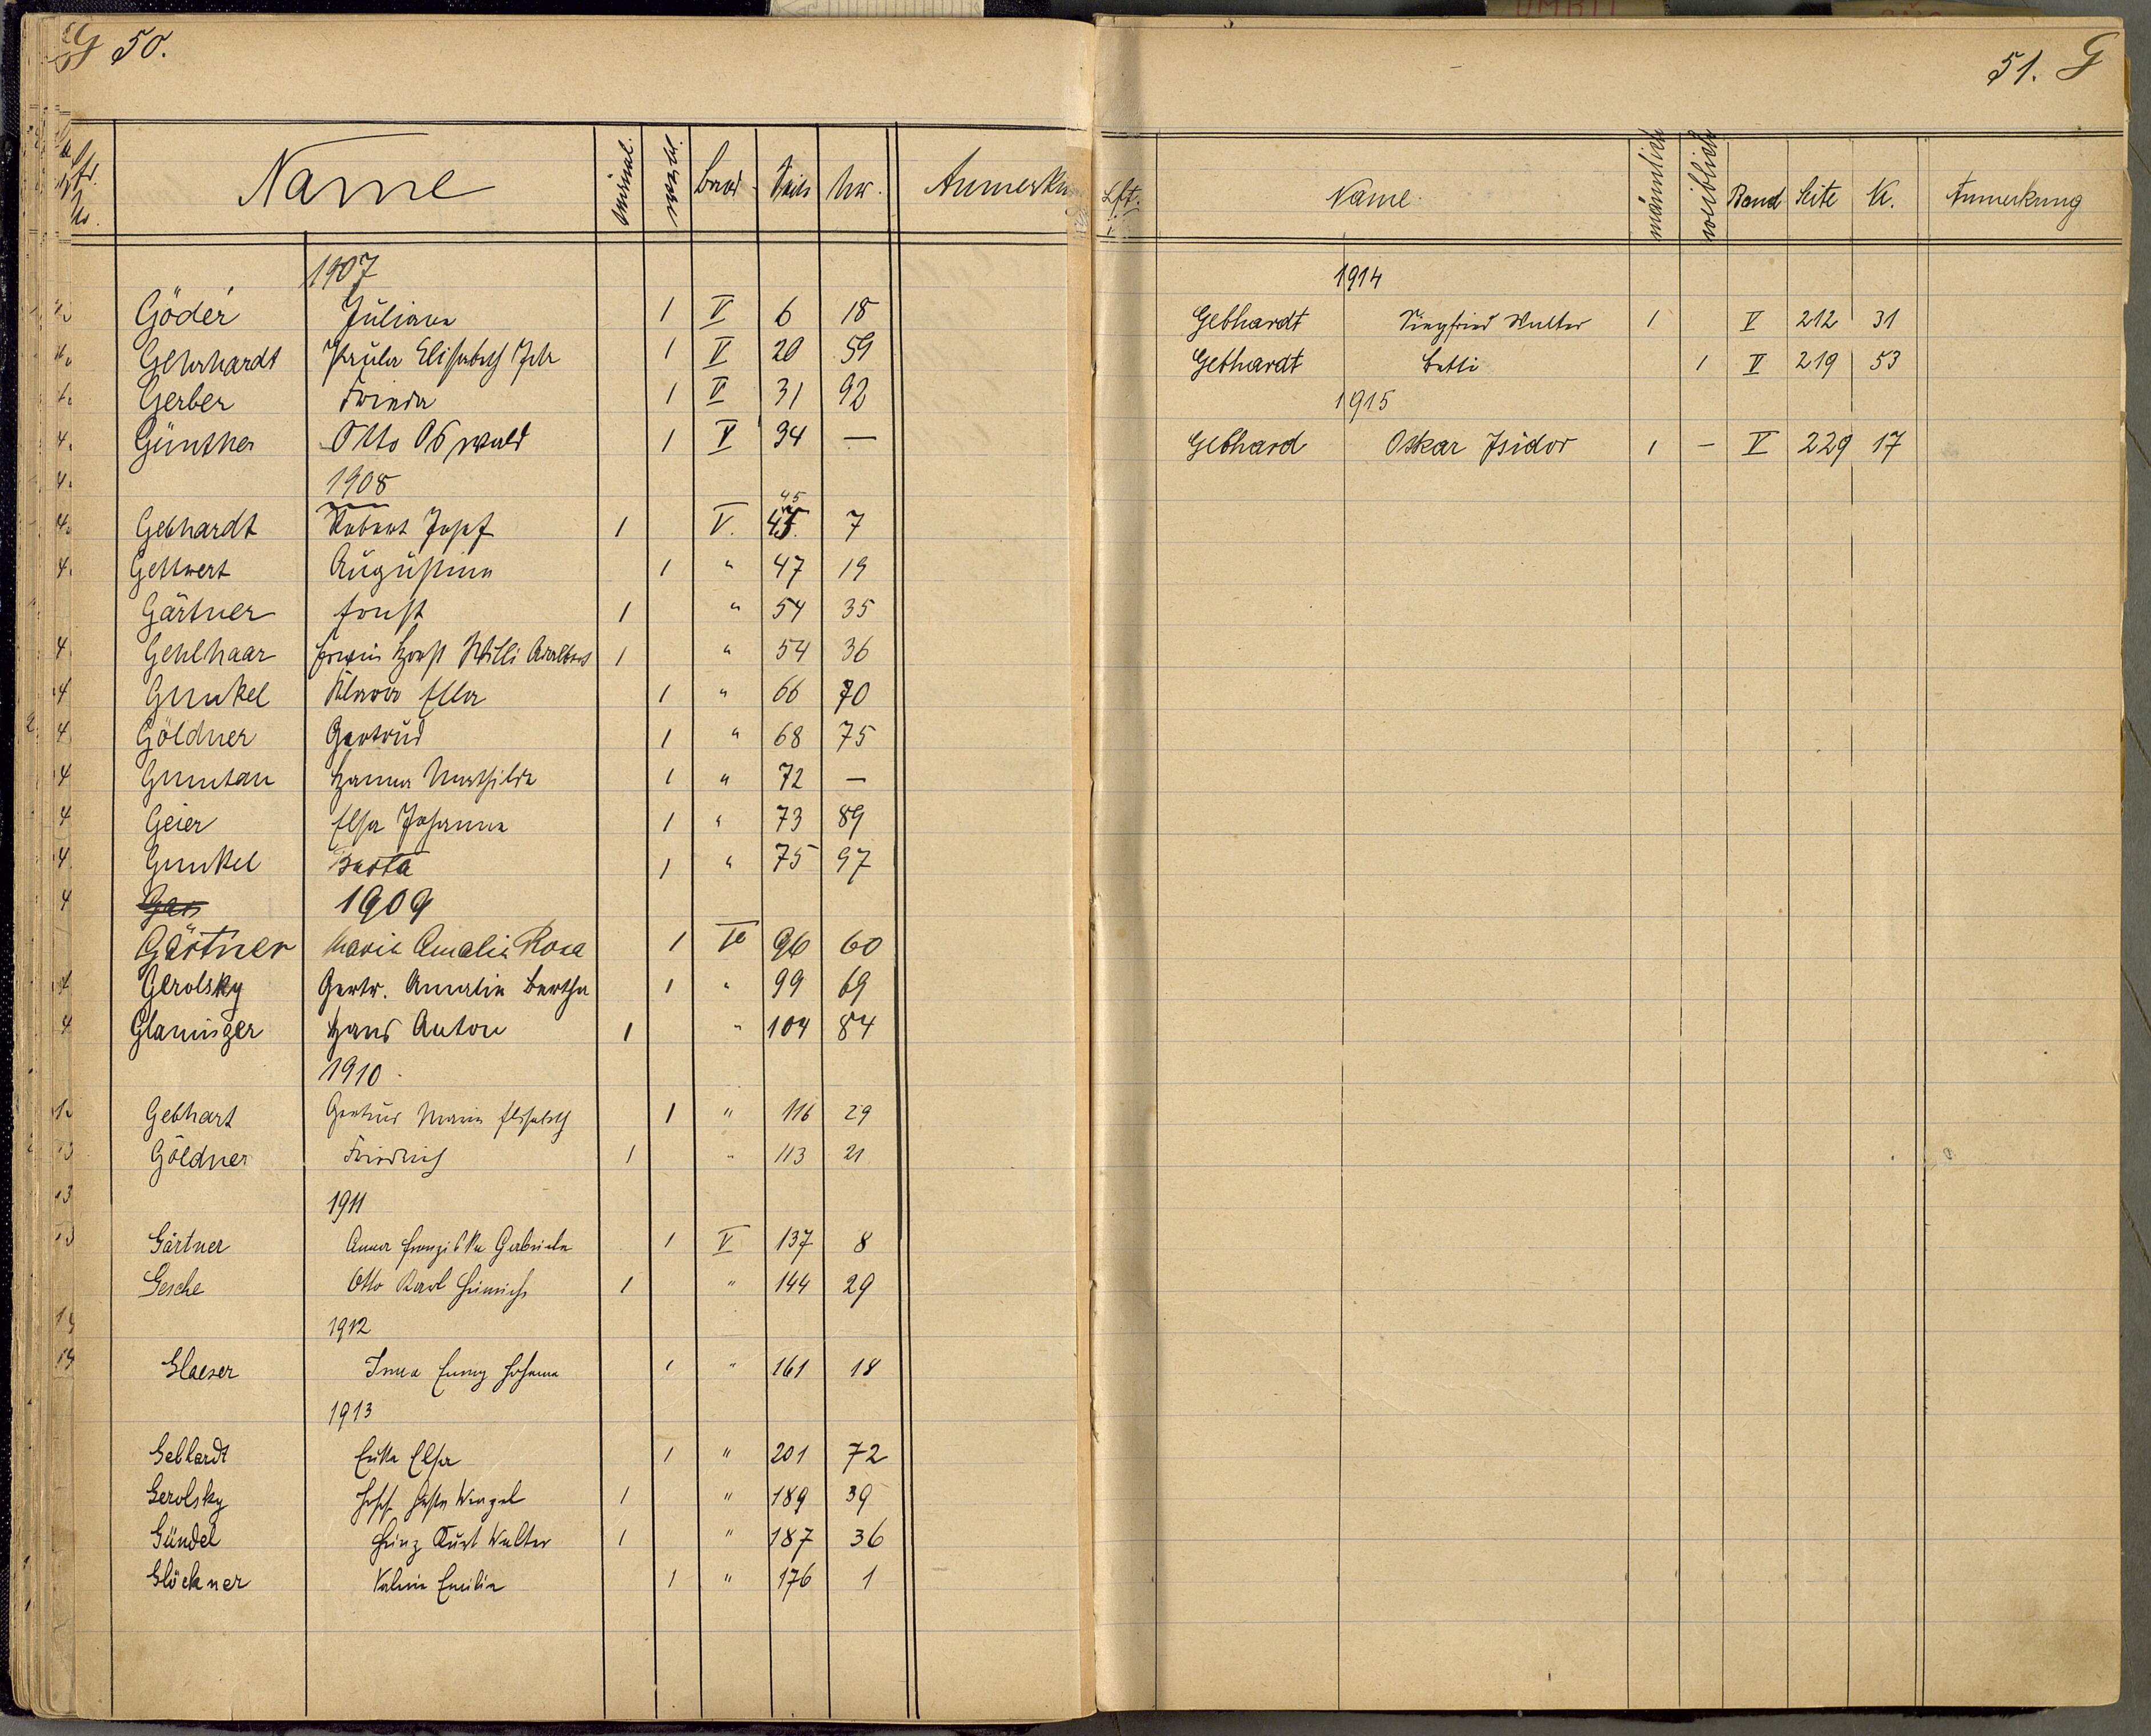 G 50.
Name männl. weibl. Band Seite Nr. Anmerku
1907
Göder Juliana 1 V 6 18
Gehrhardt Paula Elisabeth Ida 1 V 20 59
Gerber Frieda 1 V 31 92
Günther Otto Oswald 1 V 34 —
1908
45
Gebhardt Robert Josef 1 V. 45. 7
Gettwert Augustina 1 " 47 19
Gärtner Ernst 1 " 54 35
Gehlhaar Erwin Horst Willi Adalbert 1 " 54 36
Gunkel Klara Ella 1 " 66 70
Göldner Gertrud 1 " 68 75
Gumtau Hanna Mathilde 1 " 72 —
Geier Elsa Johanna 1 " 73 89
Gunkel Berta 1 " 75 97
1909
Gärtner Marie Amalie Rosa 1 V 96 60
Gerolsky Gertr. Amalia Bertha 1 " 99 69
Glaninger Hans Anton 1 " 104 84
1910
Gebhart Gertrud Maria Elisabeth 1 " 116 29
Göldner Friedrich 1 " 113 21
1911
Gärtner Anna Franziska Gabriela 1 V 137 8
Gesche Otto Karl Heinrich 1 " 144 29
1912
Glaeser Irma Emmy Johanna 1 " 161 18
1913
Gebhardt Erika Elsa 1 " 201 72
Gerolsky Josef Wenzel 1 " 189 39
Gündel Heinz Kurt Walter 1 " 187 36
Glöckner Valerie Emilie 1 " 176 1
51. G
Lft. Name männlich weiblich Band Seite N. Anmerkung
1914
Gebhardt Siegfried Walter 1 V 212 31
Gebhardt Betti 1 V 219 53
1915
Gebhard Oskar Isidor 1 – V 229 17